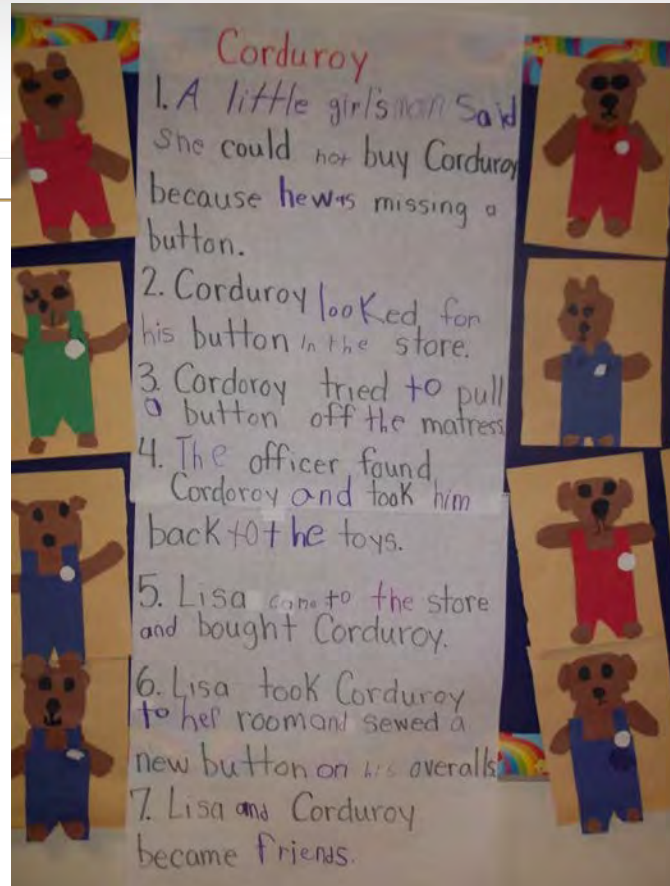 Corduroy
1. A little girl's mom Said
She could not buy Corduroy
because he was missing a
button.
2. Corduroy looked for
his button in the store.
3. Cordoroy tried to pull
a button off the matress
4. The officer found
Cordoroy and took him
back to the toys.
5. Lisa came to the store
and bought Corduroy.
6. Lisa took Corduroy
to her room and sewed a
new button on his overalls
7. Lisa and Corduroy
became friends.